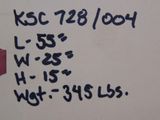 KSC 728/004
L- 55"
W- 25"
H- 15"
Wgt.- 345 Lbs.